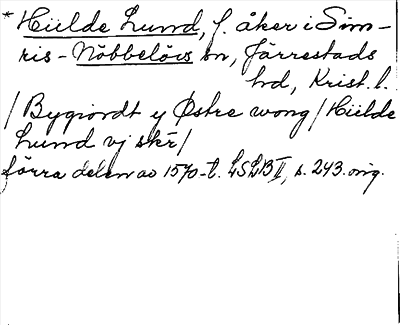 * Hülde Lund, f. åker i Sim-
ris-Nöbbelövs sn, Järrestads
hd, Krist. l.
/Bygiordt y Østre wong/Hülde
Lund vj skr/
förra delen av 1570-t. LSLB II, s. 243. orig.